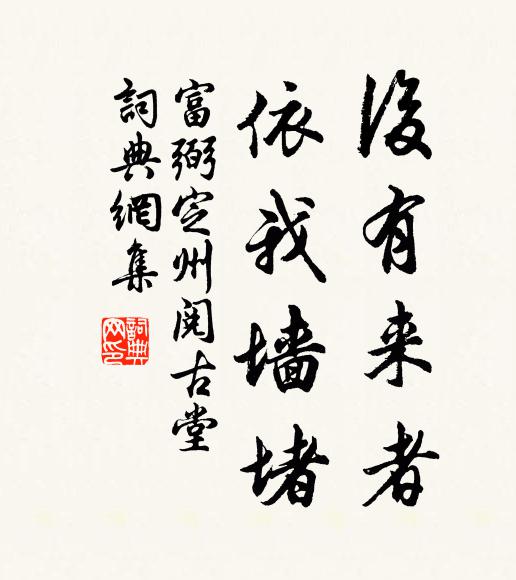 後有来者
依我墙堵
富弼定州閱古堂
詞典網集
詞典網印